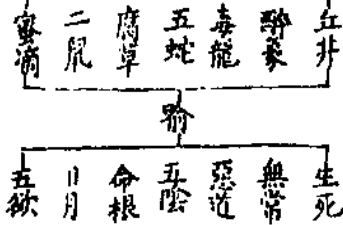 丘井
醉象
毒龍
五蛇
腐草
二鼠
蜜滴
喻
生死
無常
惡道
五陰
命根
日月
五欲